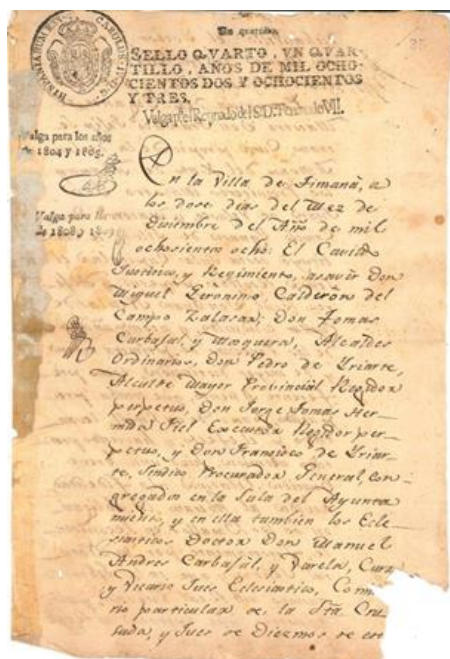 Un quartillo.
HISPANIARUM REX CAROLUS IV D G
SELLO QVARTO, VN QVAR-
TILLO, AÑOS DE MIL OCHO-
CIENTOS DOS Y OCHOCIENTOS
Y TRES.
Valga por el Reynado del S.D. Fernando VII.
Valga para los años
de 1804 y 1805.
Valga para los
de 1808 y 1809
En la Villa de Timaná, a
los dose dias del Mez de
Diciembre del Año de mil
ochosientos ocho: El Cavildo
Justicia, y Regimiento, asavir Don
Miguel Geronimo Calderon del
Campo Zalasar; Don Tomas
Carbajal, y Mosquera, Alcaldes
Ordinarios, Don Pedro de Yriarte,
Alcalde Mayor Provincial Regidor
perpetuo, Don Jorge Tomas Her-
mida Fiel Executor Regidor per-
petuo, y Don Fransisco de Yriar-
te, Sindico Procurador General, con-
gregados en la Sala del Ayunta
miento, y en ella tambien los Ecle-
siasticos Doctor Don Manuel
Andres Carbajal, y Varela, Cura
y Vicario Jues Eclesiastico, Comi
rio particular de la Sta. Cru-
sada, y Jues de Diezmos de est